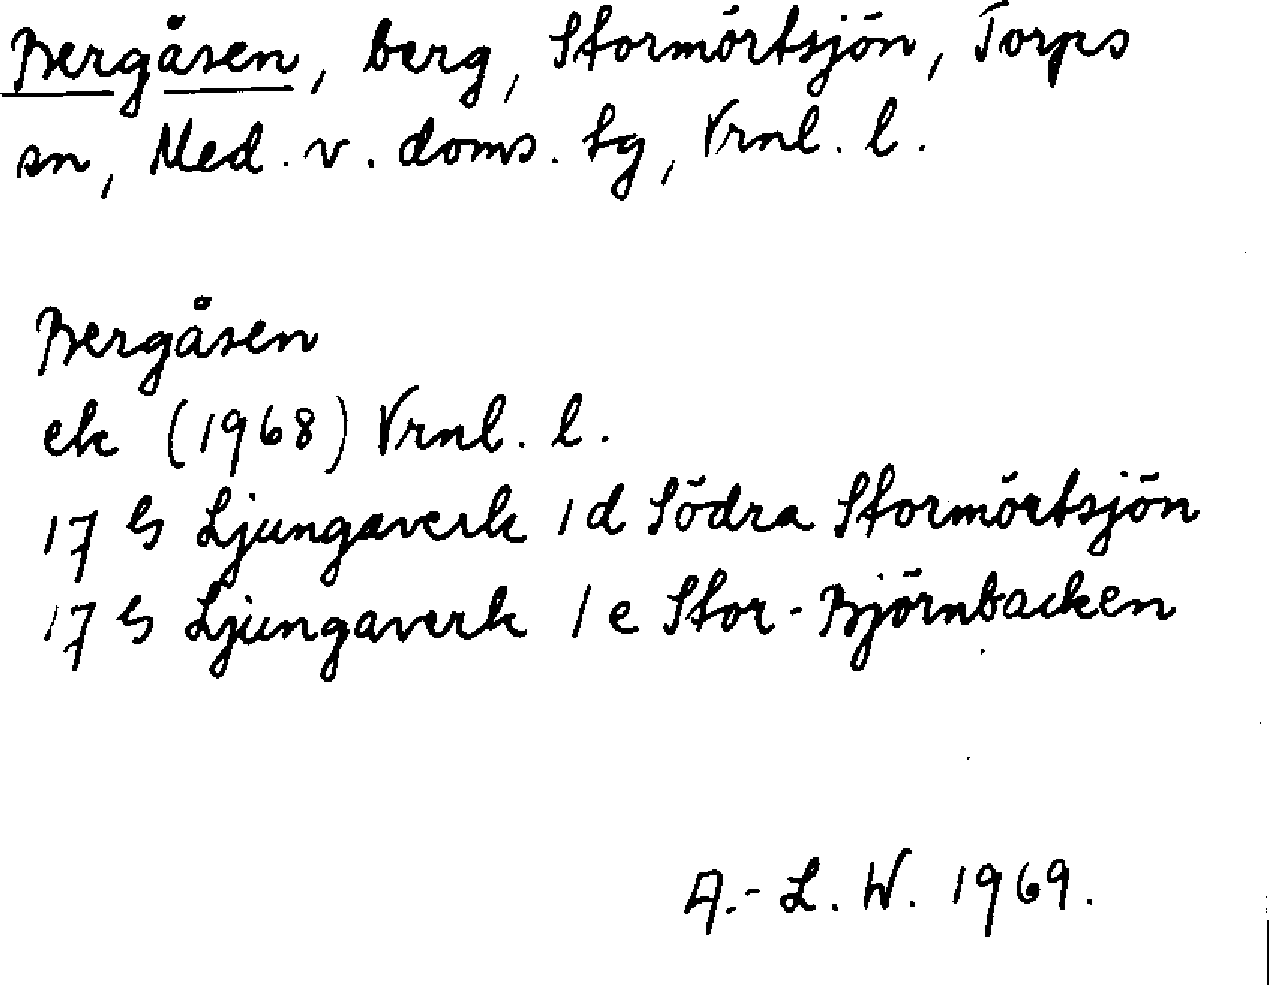 Bergåsen, berg, Stormörtsjön, Torps
sn, Med. v. doms. tg, Vrnl. l.
Bergåsen
ek (1968) Vrnl. l.
17 G Ljungaverk 1 d Södra Stormörtsjön
17 G Ljungaverk 1 e Stor-Björnbacken
A.-L. W. 1969.